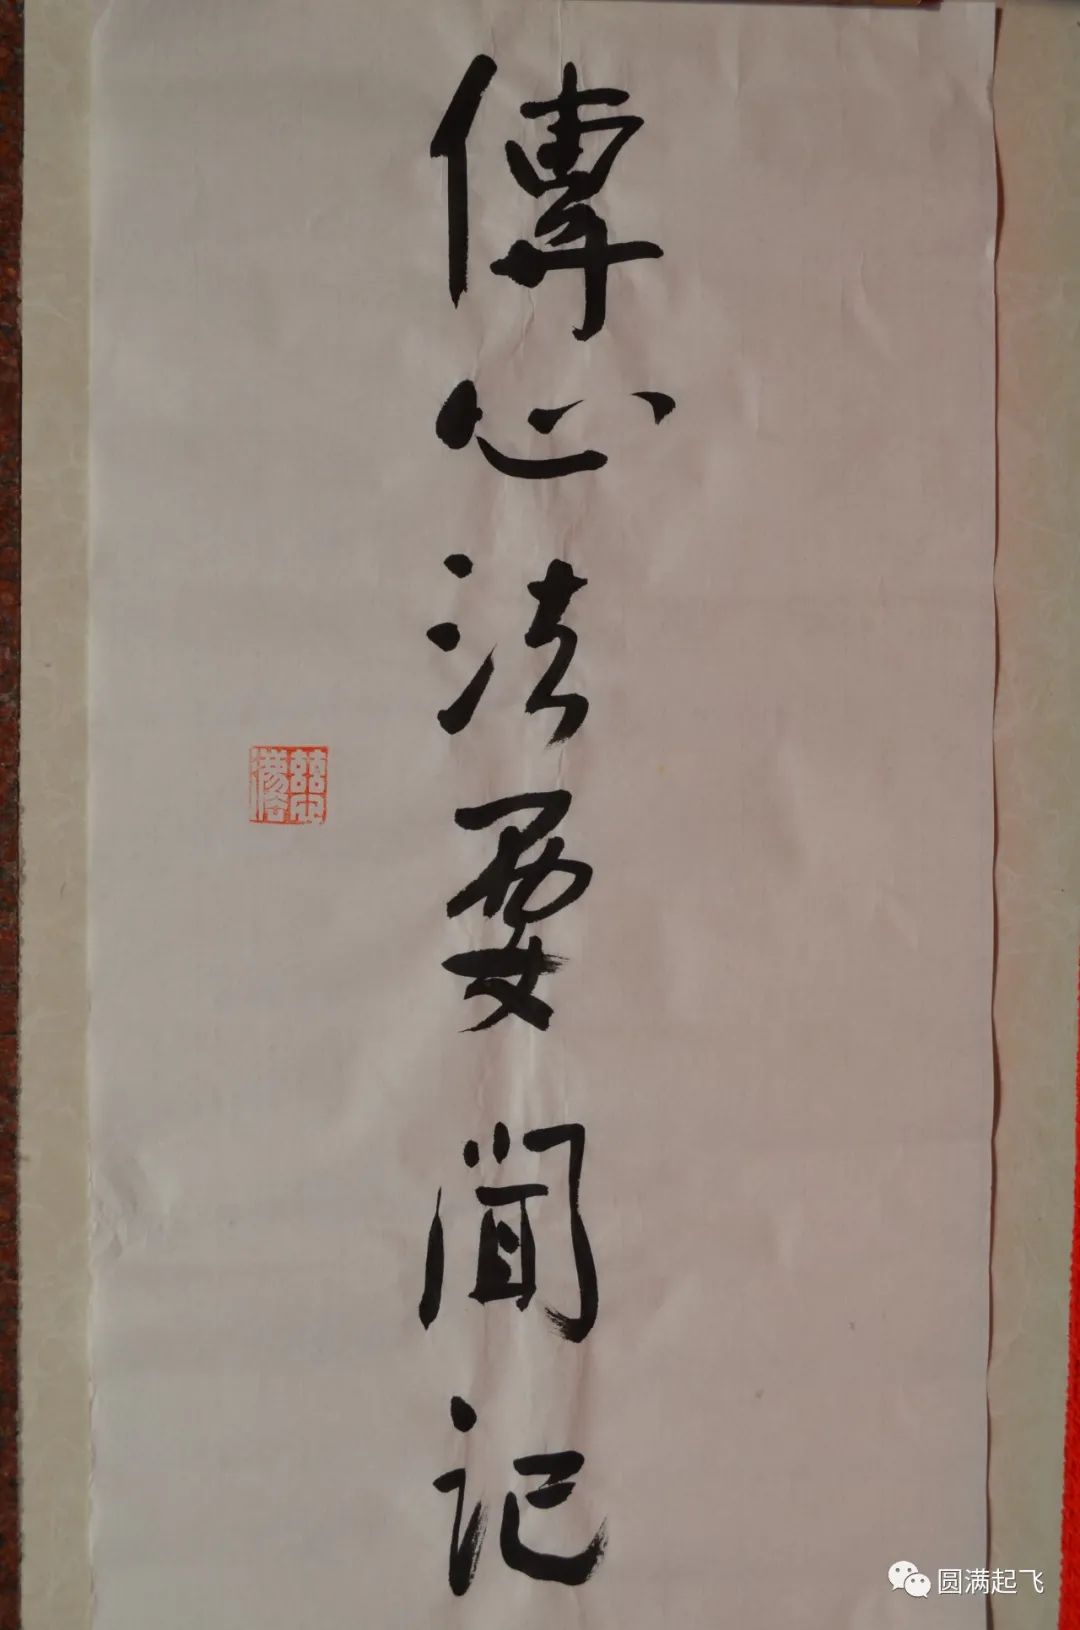 傳心法要聞记
圆满起飞